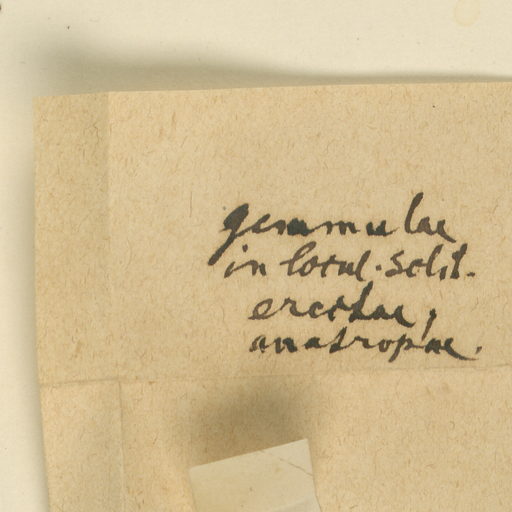 gemmulae
in locul. solit.
erectae,
anatropae.